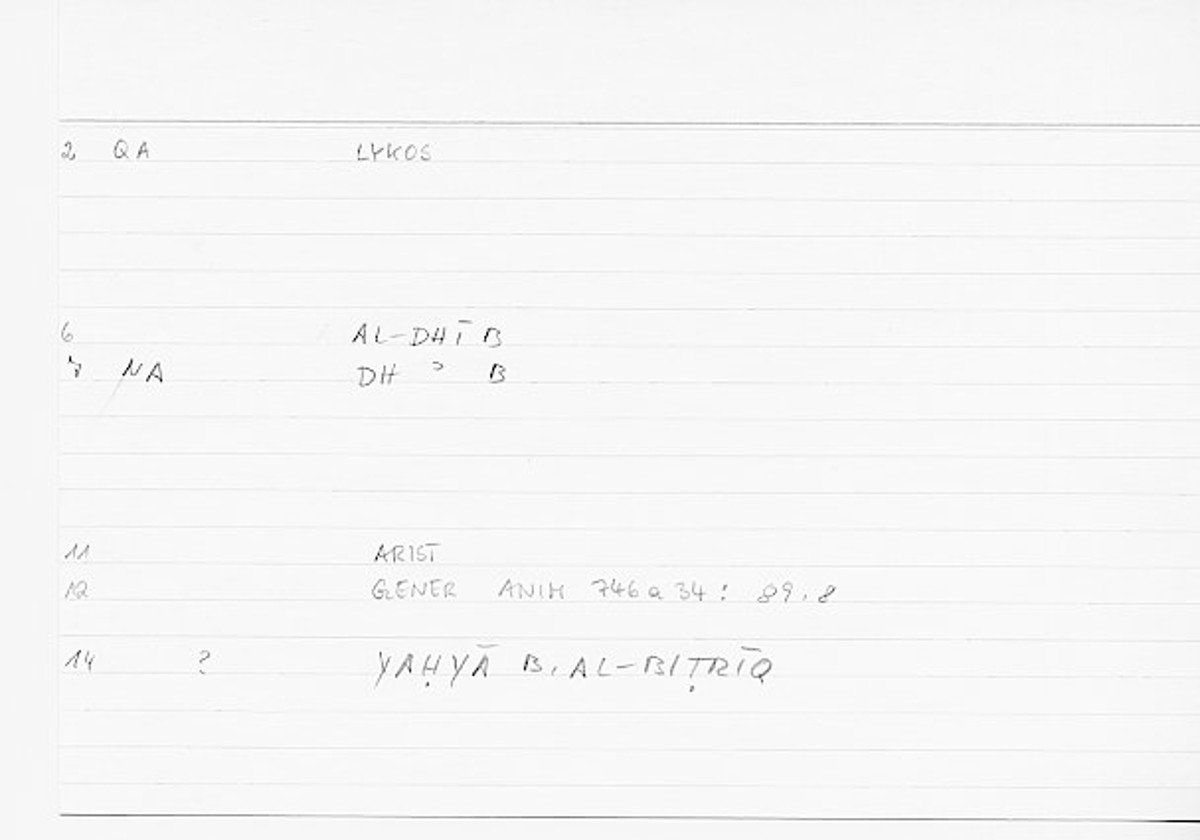 2 QA LYKOS
6 AL-DHĪB
7 NA DH ʾ B
11 ARIST
12 GENER ANIM 746a34: 89.8
14 ? YAḤYĀ B. AL-BIṬRĪQ